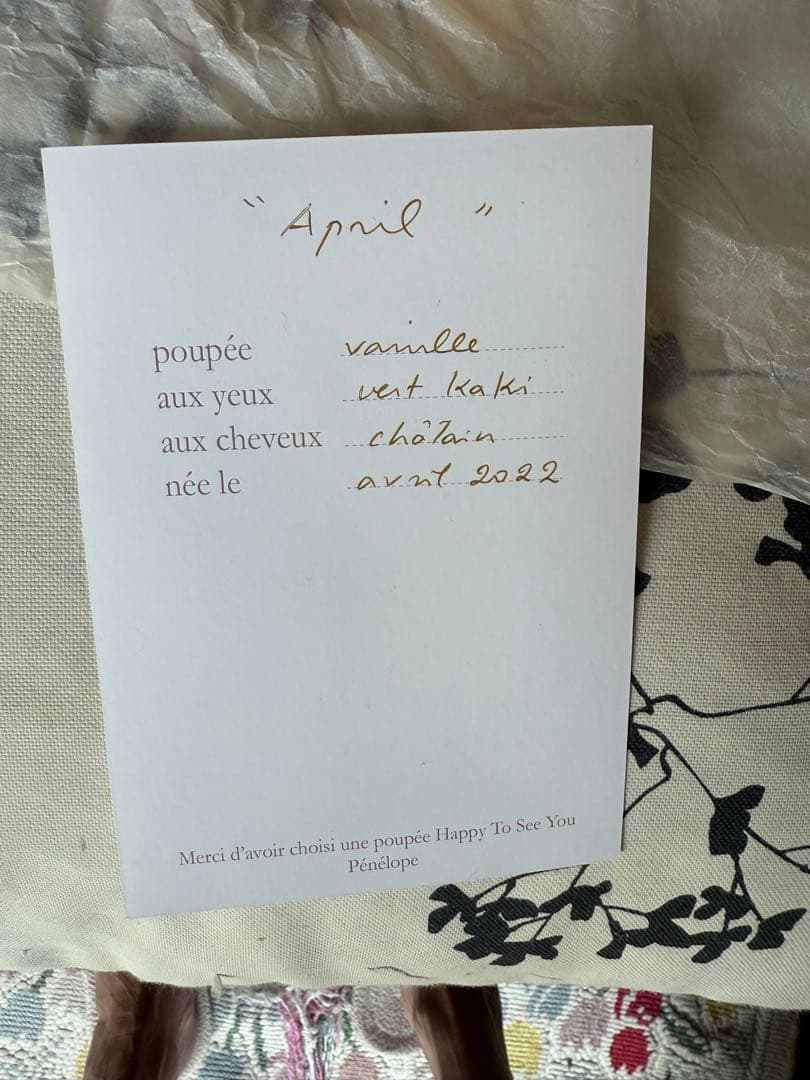 "April"
poupée vanille
aux yeux vert kaki
aux cheveux châtain
née le avril 2022
Merci d'avoir choisi une poupée Happy To See You
Pénélope